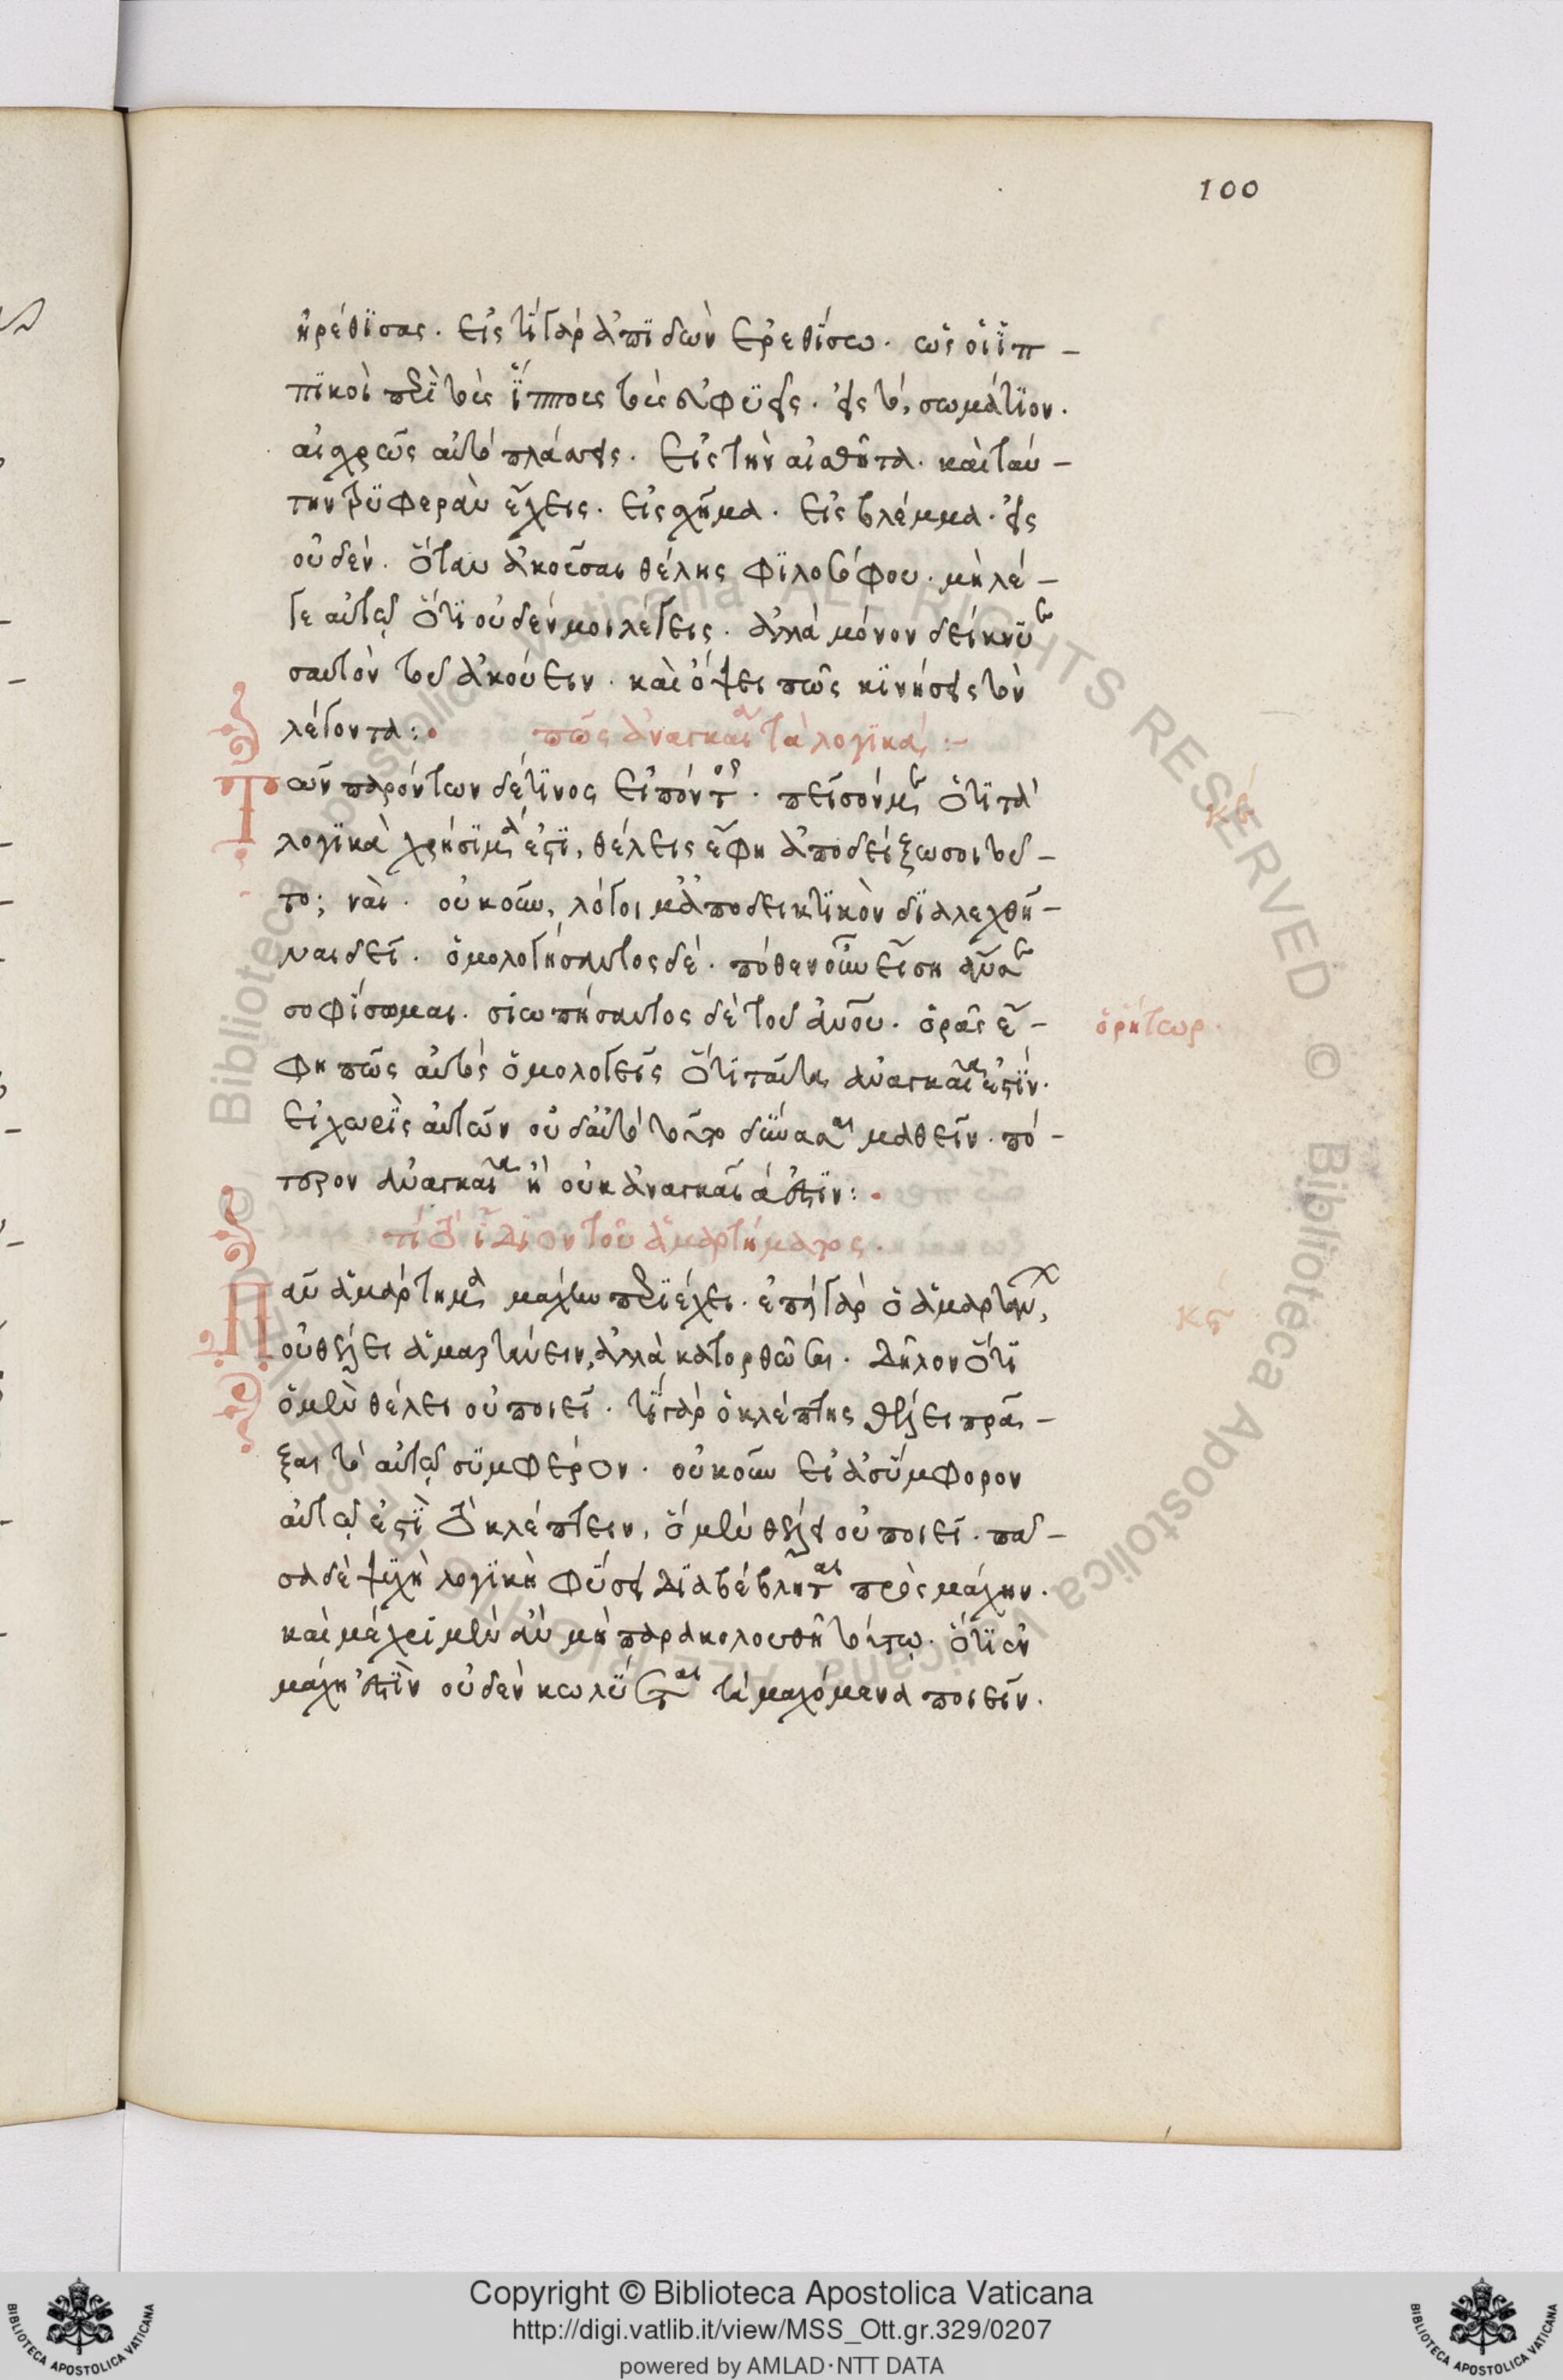 100
ἠρέθϊσας. εἰς τί γὰρ ἀπϊδὼν ἐρεθΐσω. ὡς οἱ ἱπ -
πϊκοὶ περὶ τοὺς ἵππους τοὺς εὐφϋεῖς. εἰς τὸ σωμάτϊον.
αἰσχρῶς αὐτὸ πλάσσεις. εἰς τὴν αἰσθῆτα. καὶ ταύ -
την τρϋφερὰν ἔχεις. εἰς σχῆμα. εἰς βλέμμα. εἰς
οὐδέν. ὅταν ἀκοῦσαι θέλης φϊλοσόφου. μὴ λέ -
γε αὐτῷ ὅτϊ οὐδέν μοι λέγεις. ἀλλὰ μόνον δείκνϋε
σαυτὸν τοῦ ἀκούειν. καὶ ὄψει πῶς κϊνήσεις τὸν
λέγοντα:
πῶς ἀναγκαῖα τὰ λογϊκά :-
Τῶν παρόντων δέ τϊνος εἰπόντος. πεῖσόν με ὅτϊ τὰ
κβ
λογϊκὰ χρήσϊμά ἐστϊ, θέλεις ἔφη ἀποδείξω σοι τοῦ -
το; ναί. οὐκοῦν, λόγον μ' ἀποδεικτϊκὸν δϊαλεχθῆ -
ναι δεῖ. ὁμολογήσαντος δέ. πόθεν οὖν εἴση ἄν με
σοφΐσωμαι. σϊωπήσαντος δὲ τοῦ ἀνου. ὁρᾶς ἔ -
ὁ ρήτωρ.
φη πῶς αὐτὸς ὁμολογεῖς ὅτϊ ταῦτα ἀναγκαῖα ἐστϊν.
εἰ χωρὶς αὐτῶν οὐδ' αὐτὸ τοῦτο δύνασαι μαθεῖν. πό -
τερον ἀναγκαῖα ἢ οὐκ ἀναγκαῖά ἐστϊν:
τί τὸ ἴδϊον τοῦ ἁμαρτήματος.
Πᾶν ἁμάρτημα μάχην περϊέχει. ἐπεὶ γὰρ ὁ ἁμαρτάνων,
κϛ
οὐ θέλει ἁμαρτάνειν, ἀλλὰ κατορθῶσαι. δῆλον ὅτϊ
ὃ μὲν θέλει οὐ ποιεῖ. τί γὰρ ὁ κλέπτης θέλει πρᾶ -
ξαι τὸ αὐτῷ σϋμφέρον. οὐκοῦν εἰ ἀσύμφορον
αὐτῷ ἐστϊ τὸ κλέπτειν, ὃ μὲν θέλει οὐ ποιεῖ. πᾶ -
σα δὲ ψϋχὴ λογϊκὴ φΰσει δϊαβέβληται πρὸς μάχην.
καὶ μέχρι μὲν ἂν μὴ παρακολουθῆ τούτῳ. ὅτϊ ἐν
μάχη ἐστϊν οὐδὲν κωλΰεται τὰ μαχόμενα ποιεῖν.
Copyright © Biblioteca Apostolica Vaticana
http://digi.vatlib.it/view/MSS_Ott.gr.329/0207
powered by AMLAD·NTT DATA